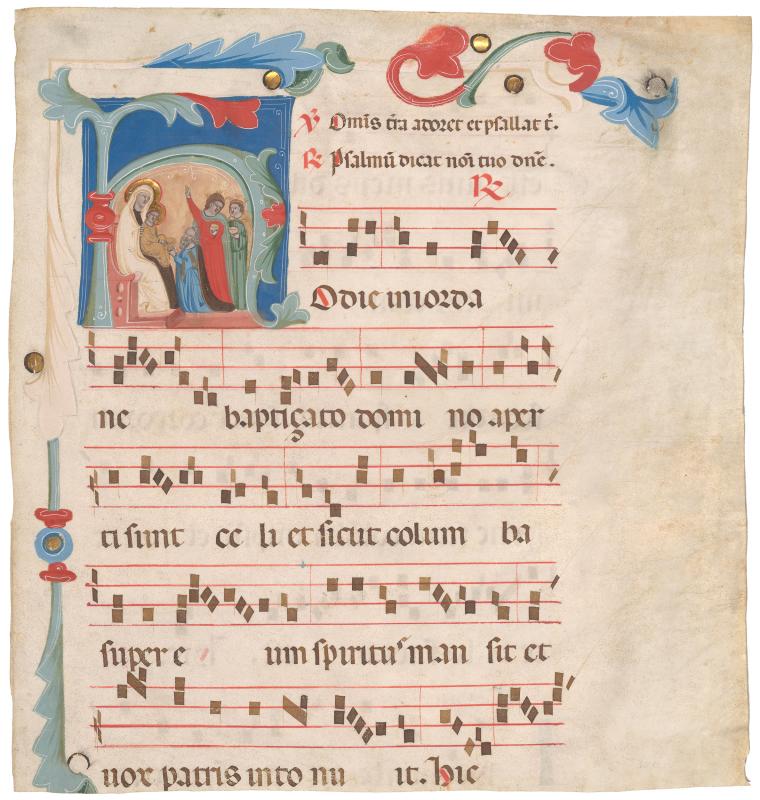 V Omīs tr̄a adoret et psallat t̄.
R Psalmū dicat noī tuo dn̄e.
R
Odie in iorda
ne baptiçato domi no aper
ti sunt ce li et sicut colum ba
super e um spiritus man sit et
uox patris into nu it. hic